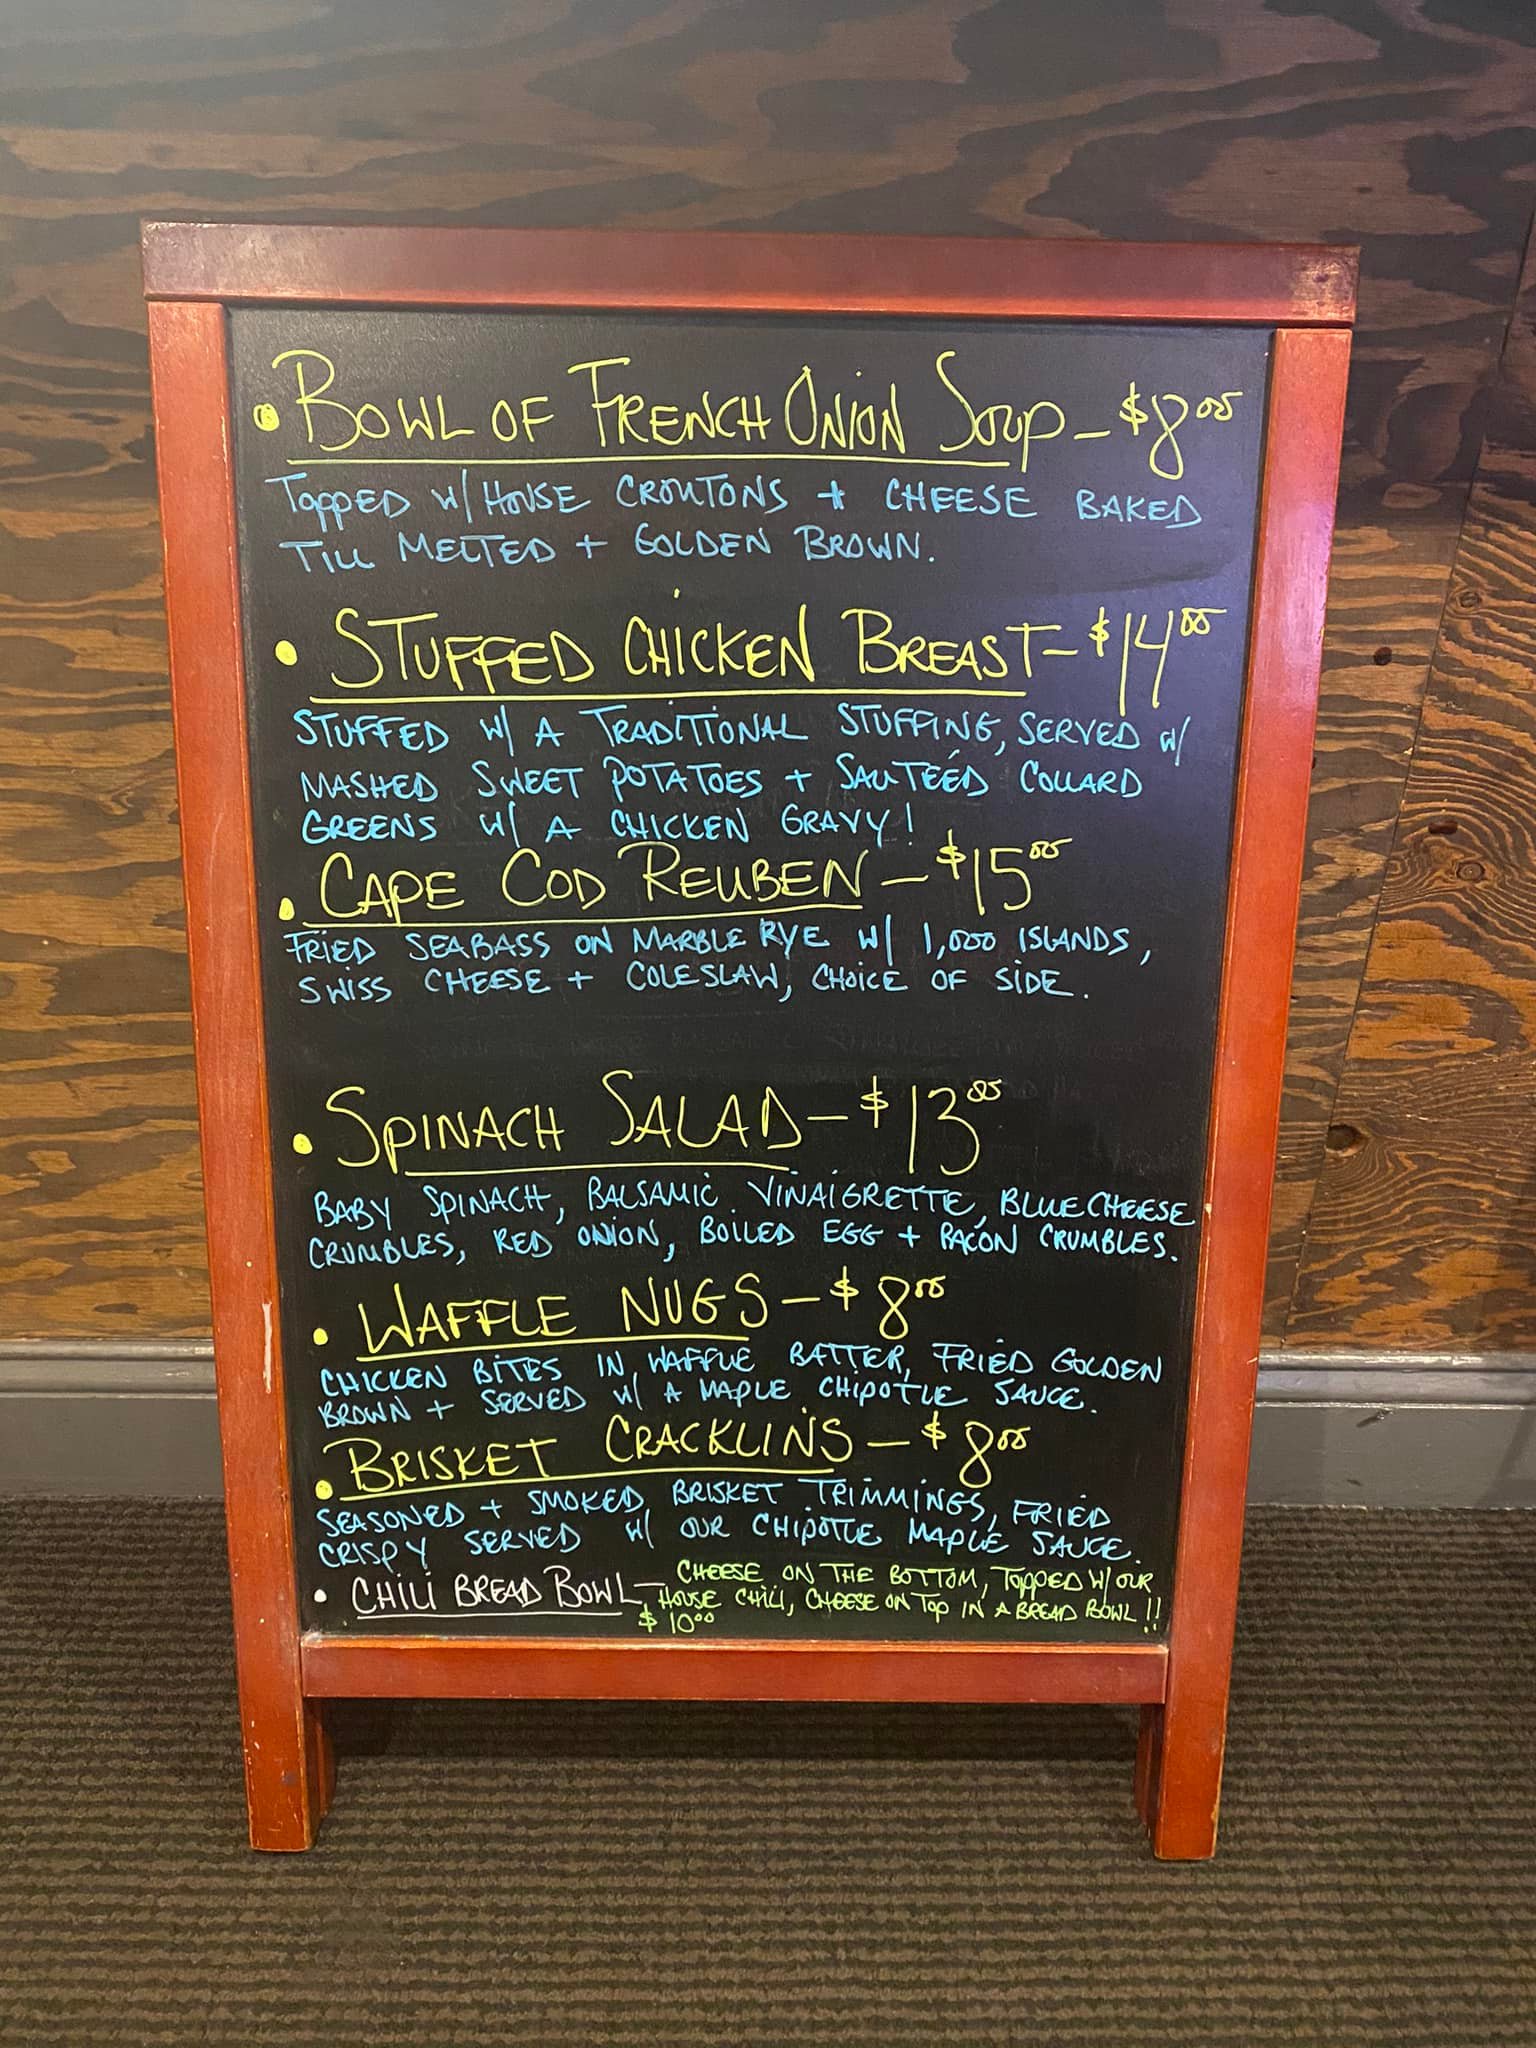 • BOWL OF FRENCH ONION SOUP - $8.00
TOPPED W/ HOUSE CROUTONS + CHEESE BAKED
TILL MELTED + GOLDEN BROWN.
• STUFFED CHICKEN BREAST - $14.00
STUFFED W/ A TRADITIONAL STUFFING, SERVED W/
MASHED SWEET POTATOES + SAUTEÉD COLLARD
GREENS W/ A CHICKEN GRAVY!
• CAPE COD REUBEN - $15.00
FRIED SEABASS ON MARBLE RYE W/ 1,000 ISLANDS,
SWISS CHEESE + COLESLAW, CHOICE OF SIDE.
• SPINACH SALAD - $13.00
BABY SPINACH, BALSAMIC VINAIGRETTE, BLUE CHEESE
CRUMBLES, RED ONION, BOILED EGG + BACON CRUMBLES.
• WAFFLE NUGS - $8.00
CHICKEN BITES IN WAFFLE BATTER, FRIED GOLDEN
BROWN + SERVED W/ A MAPLE CHIPOTLE SAUCE.
• BRISKET CRACKLINS - $8.00
SEASONED + SMOKED BRISKET TRIMMINGS, FRIED
CRISPY SERVED W/ OUR CHIPOTLE MAPLE SAUCE.
• CHILI BREAD BOWL - CHEESE ON THE BOTTOM, TOPPED W/ OUR
HOUSE CHILI, CHEESE ON TOP IN A BREAD BOWL!!
$10.00